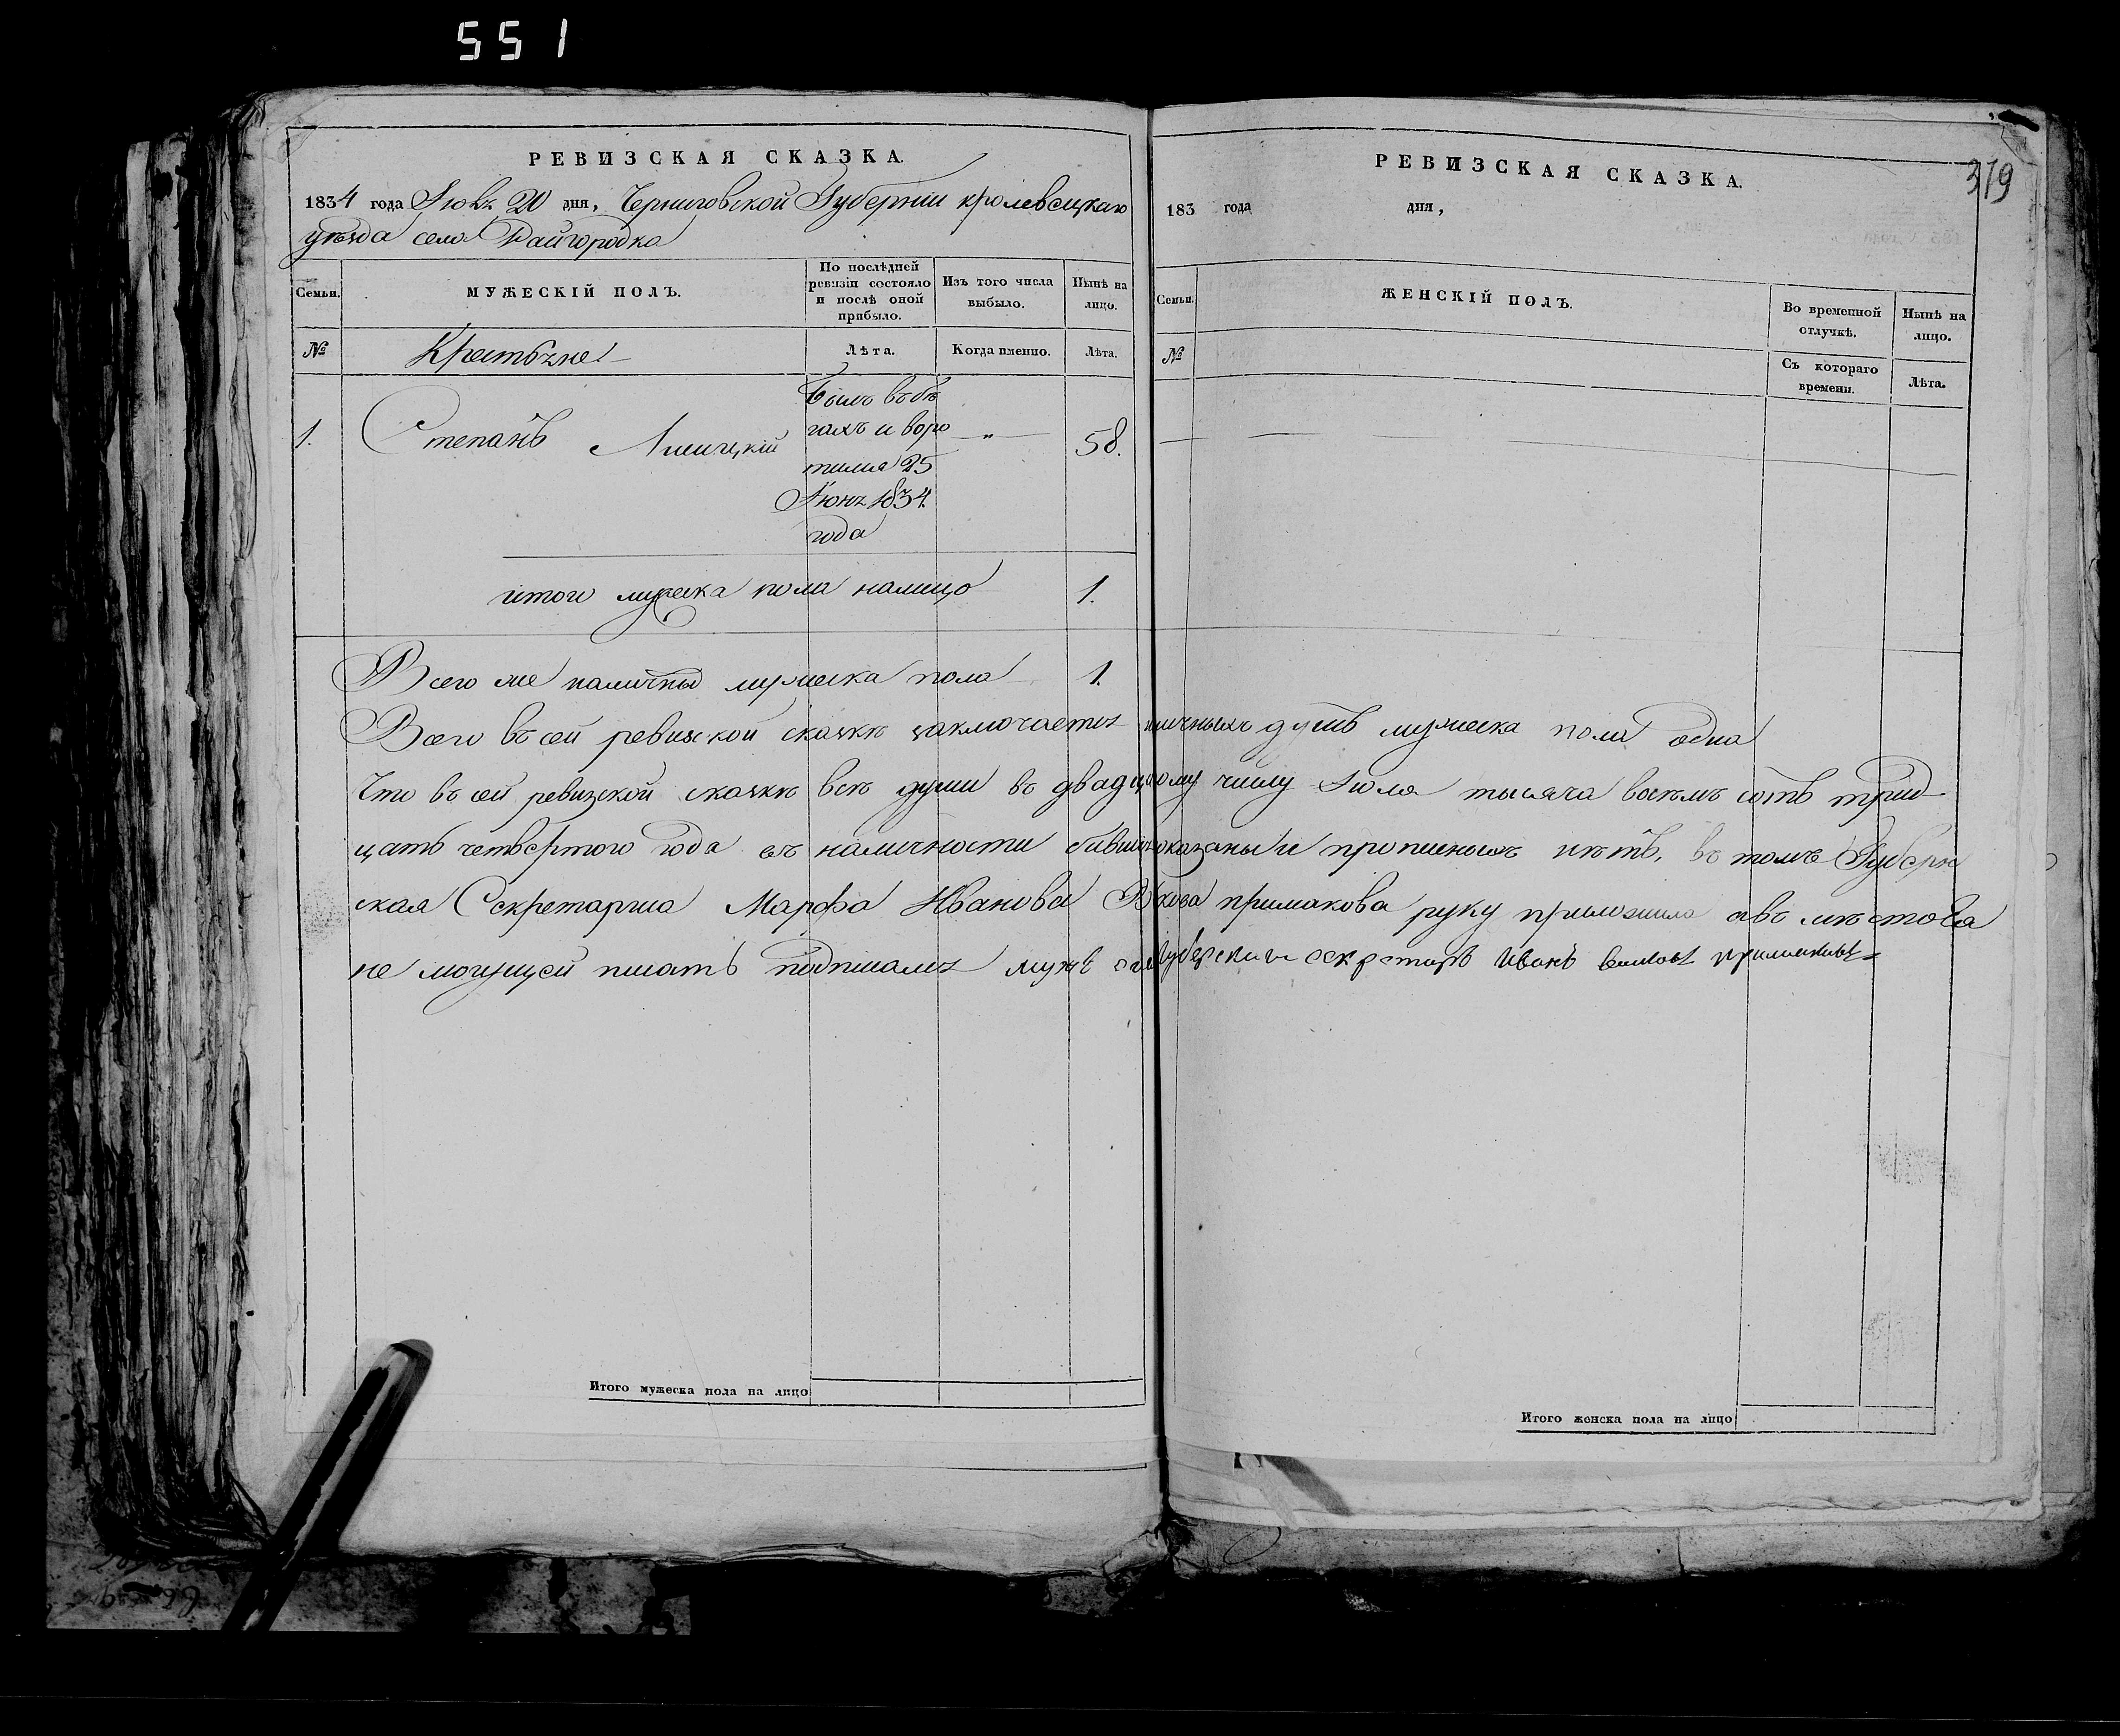 551
РЕВИЗСКАЯ СКАЗКА.
1834 года Іюля 20 дня, Черниговской Губерніи кролевецкаго
уѣзда села Райгородка
Семьи.
МУЖЕСКІЙ ПОЛЪ.
По послѣдней ревизіи состояло и послѣ оной прибыло.
Изъ того числа выбыло.
Нынѣ на лицо.
№
Крестьяне
Лѣта.
Когда именно.
Лѣта.
1. Степанъ
Былъ въ бѣ
гахъ и воро
тился 25
Іюня 1834.
года
58.
итого мужеска пола налицо 1.
Всего же наличны мужеска пола 1.
РЕВИЗСКАЯ СКАЗКА.
319
183 года дня,
Семьи.
ЖЕНСКІЙ ПОЛЪ.
Во временной отлучкѣ.
Нынѣ на лицо.
№
Съ котораго времени.
Лѣта.
Всего въ сей ревизской сказкѣ заключается душъ мужеска пола одна
Что въ сей ревизской сказкѣ всѣ души въ числу Іюля тысяча восемъ сотъ трид
цать четвертого года въ наличности показаны и прописныхъ нѣтъ, въ томъ Губернс
кая Секретарша Марфа Иванова Примакова руку приложила а вместо ея
не могущей писать подписался мужъ Губерскии секретаръ Иванъ
Итого мужеска пола на лицо
Итого женска пола на лицо